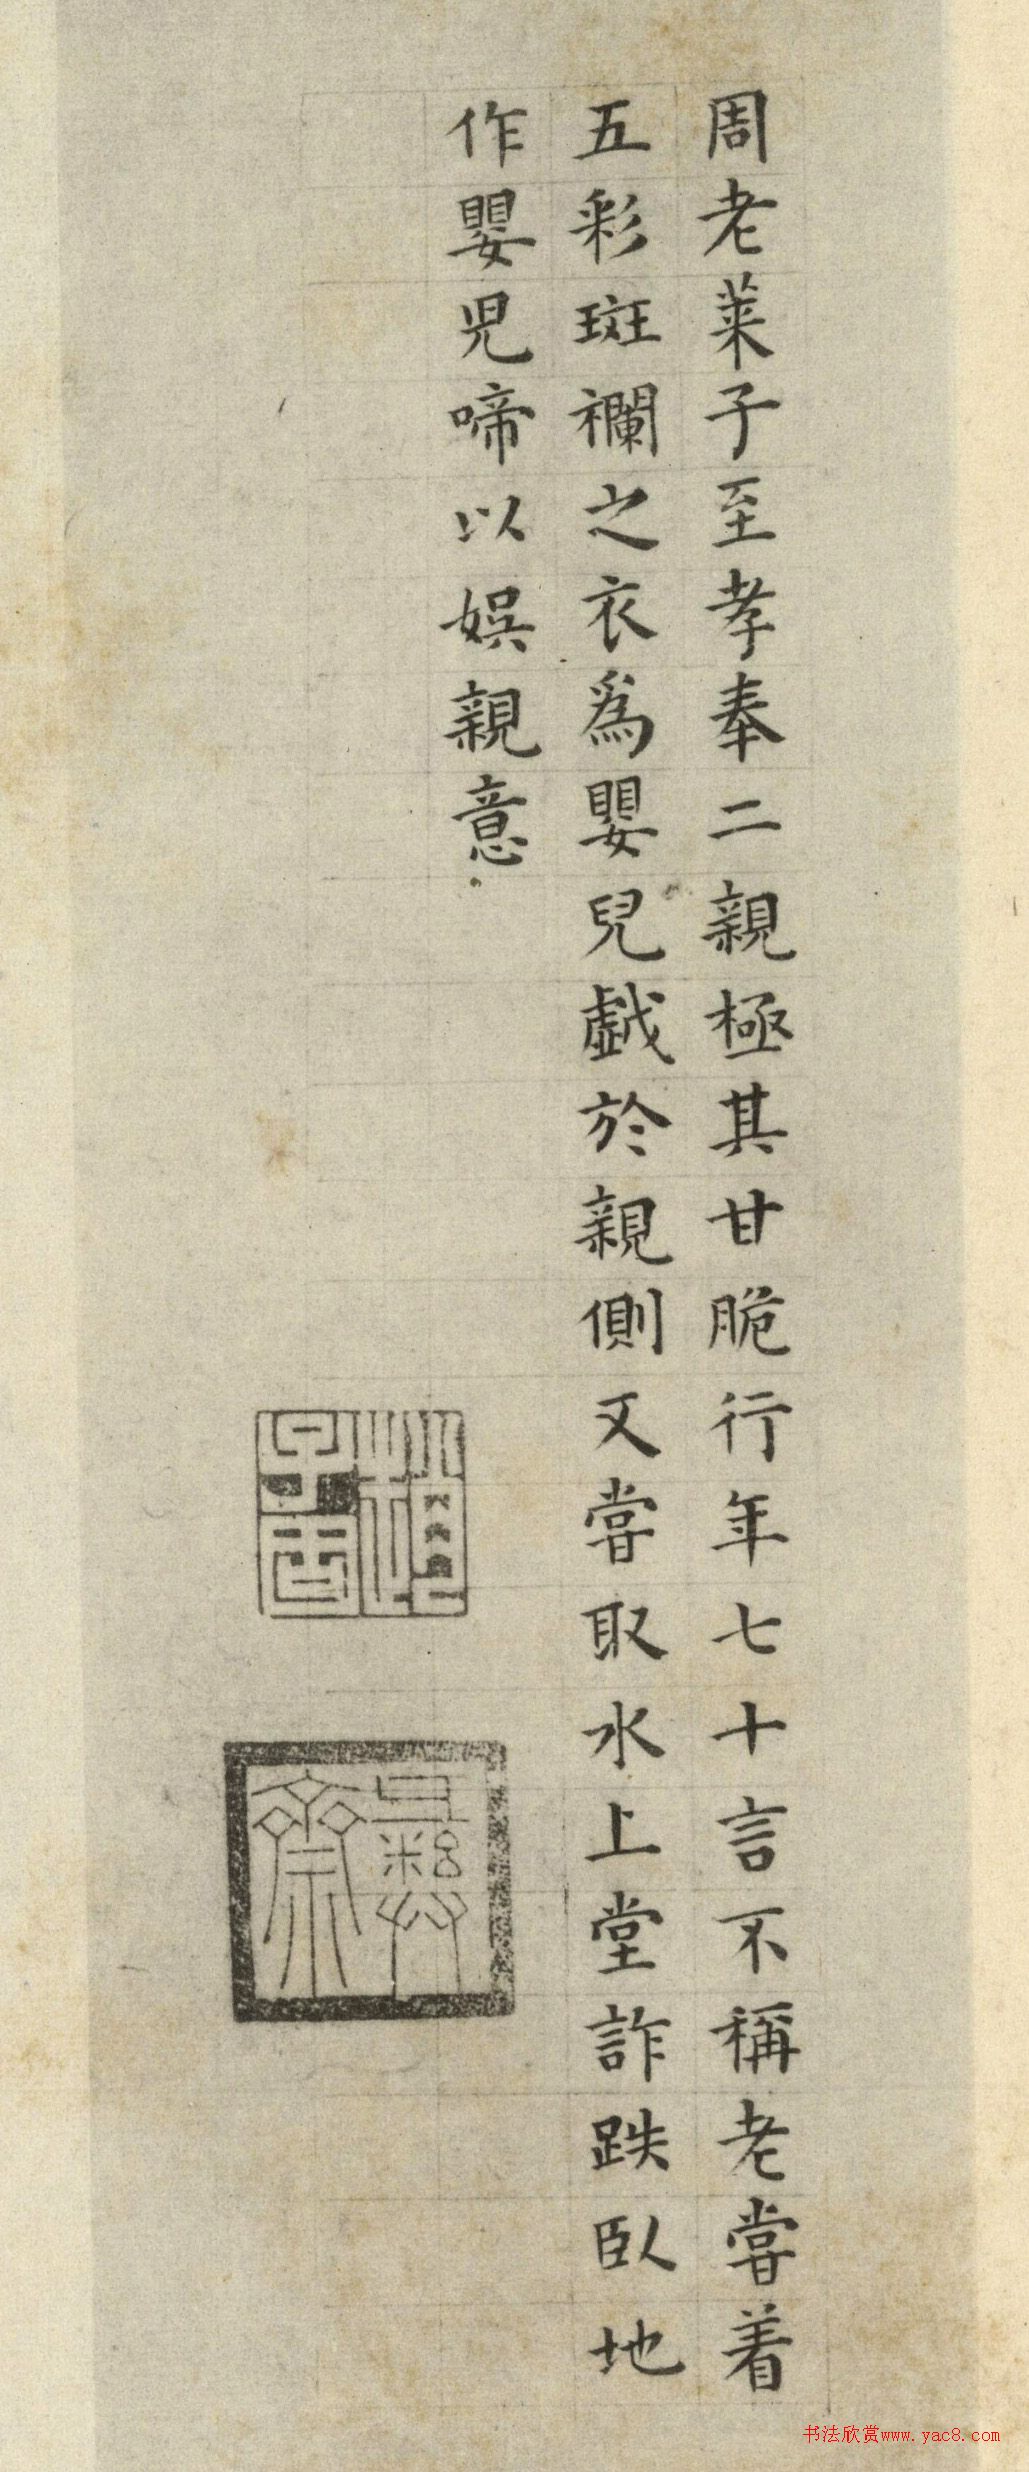 周老莱子至孝奉二親極其甘脆行年七十言不稱老嘗着
五彩斑襴之衣爲嬰兒戯於親側又嘗取水上堂詐跌臥地
作嬰児啼以娯親意
彝齋
书法欣赏www.yac8.com